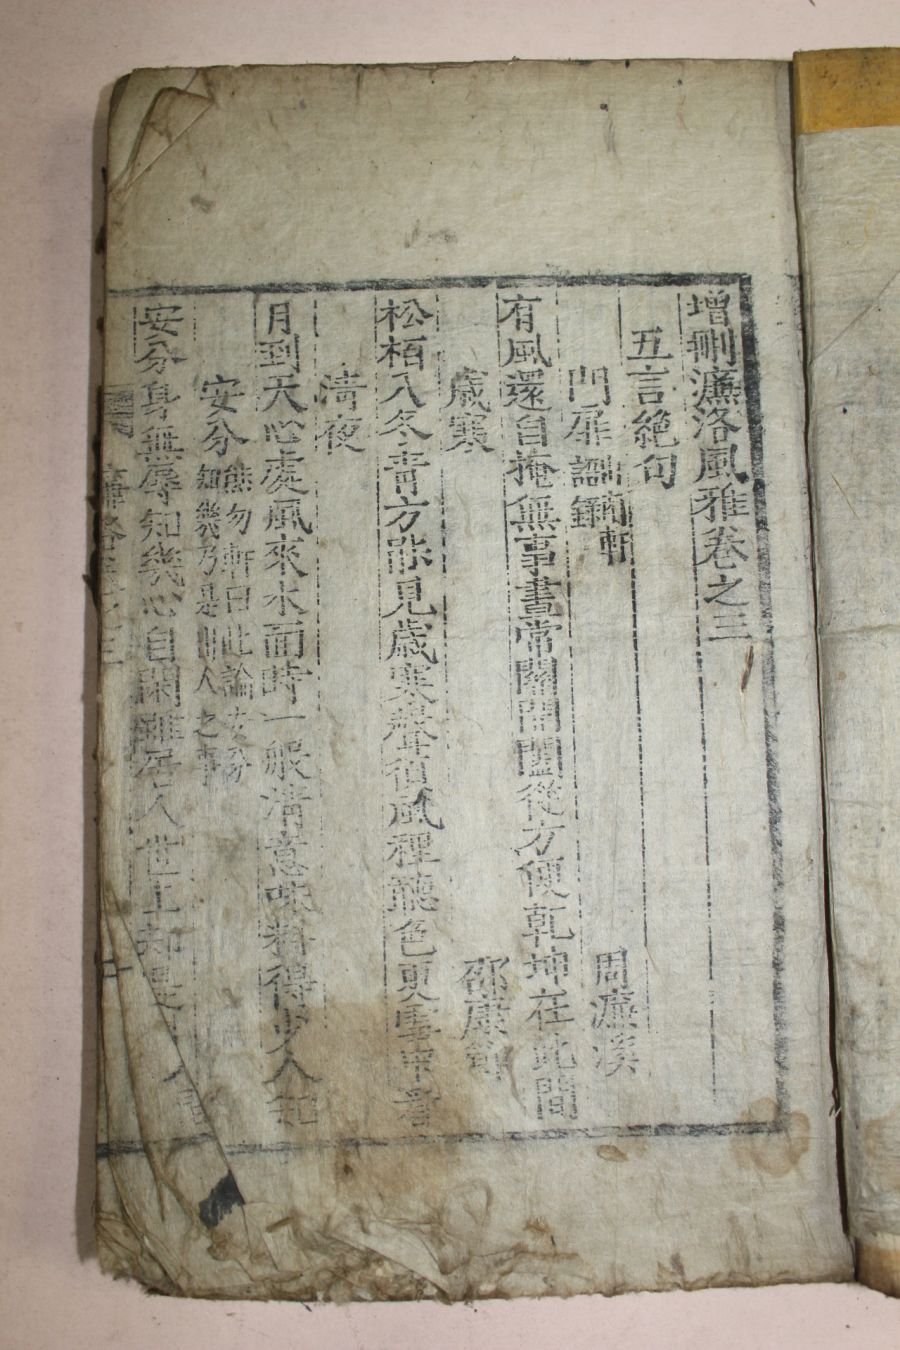 增刪濂洛風雅卷之三
五言絶句
門扉 周濂溪
有風還自掩無事晝常關開闔從方便乾坤在此間
歲寒 邵康節
松栢入冬靑方能見歲寒聲須風裡聽色更雪中看
淸夜
月到天心處風來水面時一般淸意味料得少人知
安分 熊勿軒曰此論安分
知幾乃是川人之事
安分身無辱知幾心自閑雖居人世上却是